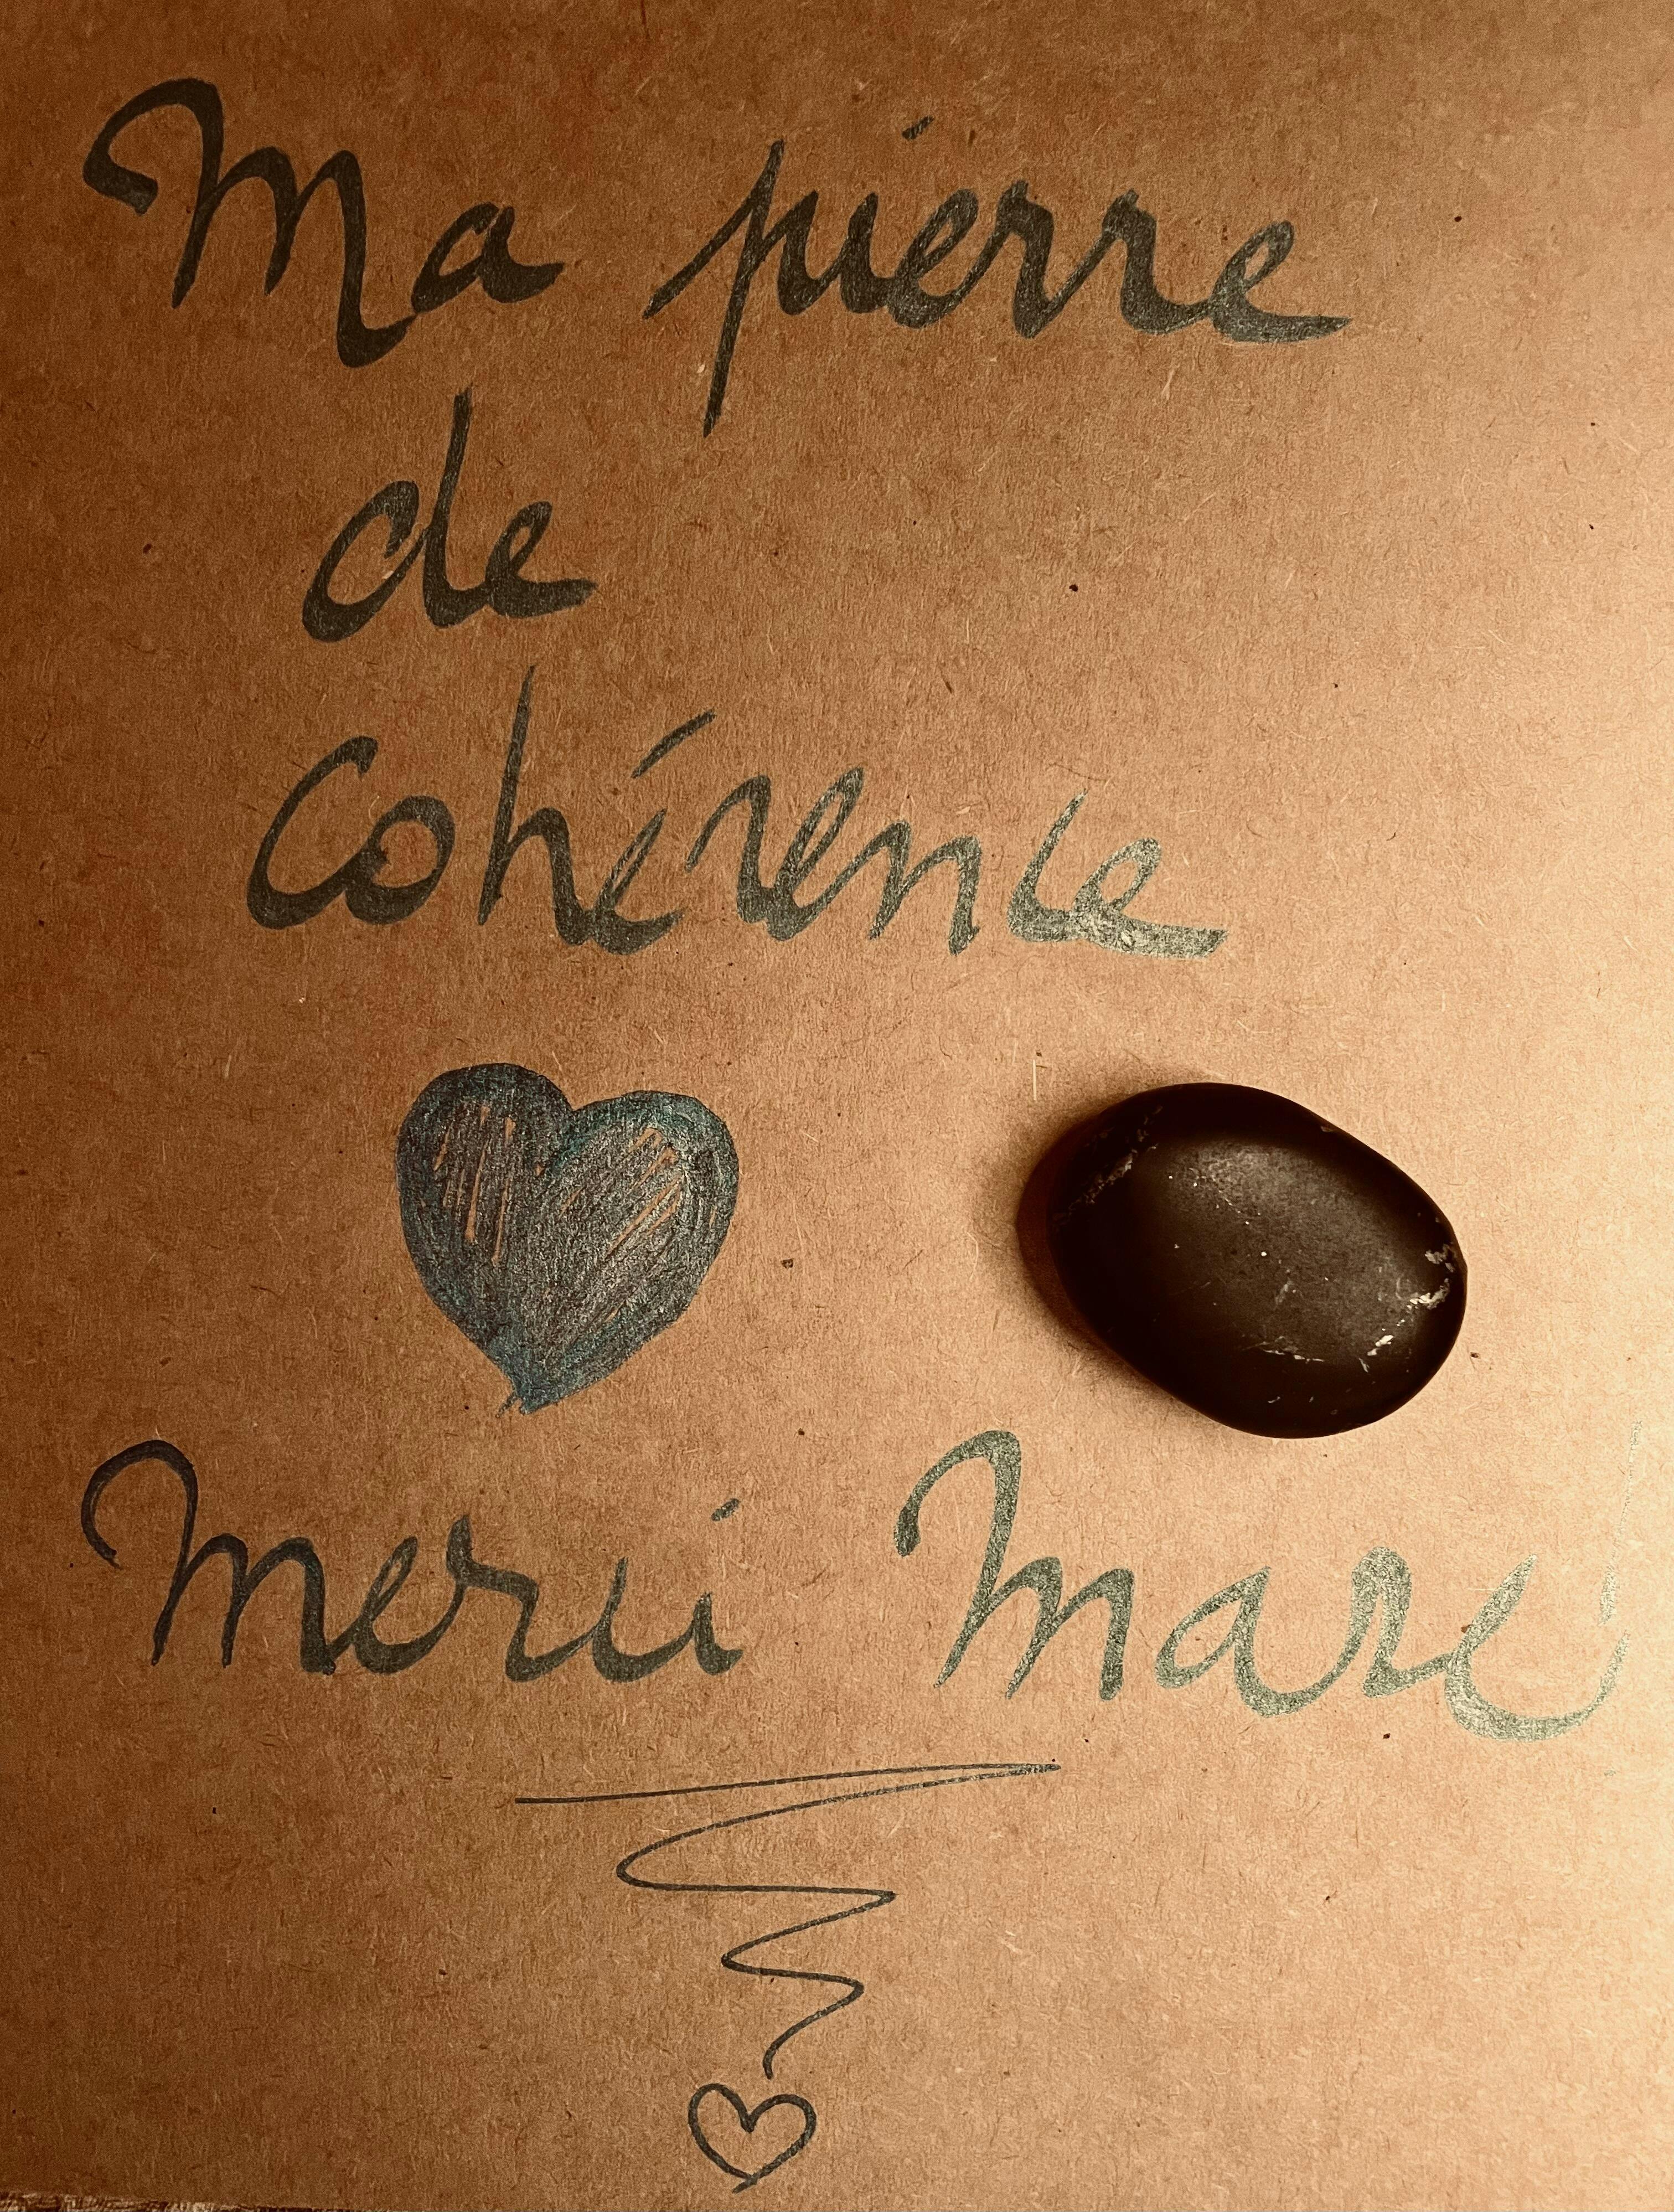 Ma pierre
de
cohérence
Merci Marc